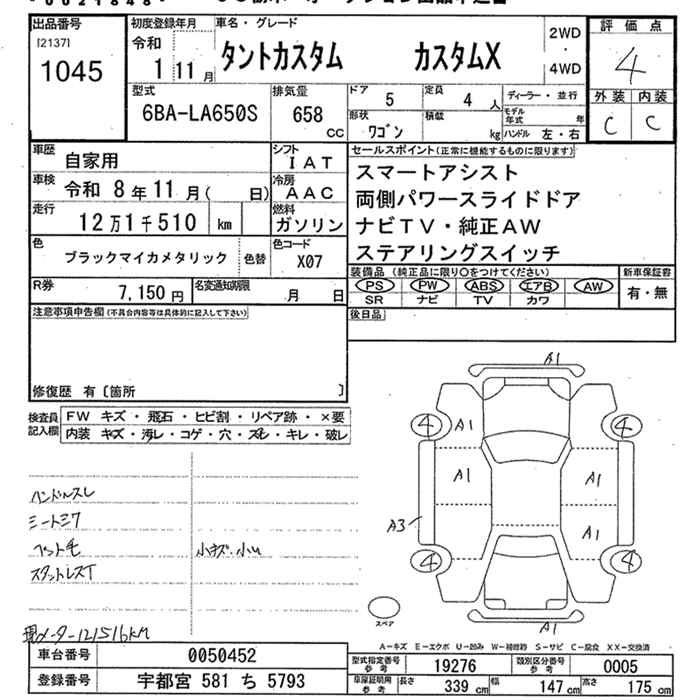 出品番号
[2137]
1045
初度登録年月
令和
1 11 月
車名・グレード
タントカスタム カスタムX
2WD
・
4WD
評価点
4
外装 内装
C C
型式
6BA-LA650S
排気量
658
CC
ドア 5
定員 4 人
形状 ワゴン
積載 kg
ディーラー・並行
モデル年式 年
ハンドル 左・右
車歴 自家用
シフト IAT
車検 令和 8年11月( 日)
冷房 AAC
走行 12万1千510 km
燃料 ガソリン
色 ブラックマイカメタリック 色替
色コード X07
R券 7,150円
名変通知期限 月 日
セールスポイント(正常に機能するものに限ります)
スマートアシスト
両側パワースライドドア
ナビTV・純正AW
ステアリングスイッチ
装備品 (純正品に限り○をつけてください)
PS PW ABS エアB AW
SR ナビ TV カワ
新車保証書
有・無
後日品
注意事項申告欄(不具合内容等は具体的に記入して下さい)
修復歴 有〔箇所 〕
検査員記入欄
FW キズ・飛石・ヒビ割・リペア跡・×要
内装 キズ・汚レ・コゲ・穴・スレ・キレ・破レ
ハンドルスレ
シートシワ
ペット毛
小キズ・小U
スタッドレスT
現メーター121516KM
A1
4 A1 4
A1 A1
A3 A1
4 4
A1
スペア
A-キズ E-エクボ U-凹み W-補修跡 S-サビ C-腐食 XX-交換済
車台番号 0050452
登録番号 宇都宮 581 ち 5793
型式指定番号 参考 19276
類別区分番号 参考 0005
車庫証明用 参考
長さ 339 cm 幅 147 cm 高さ 175 cm